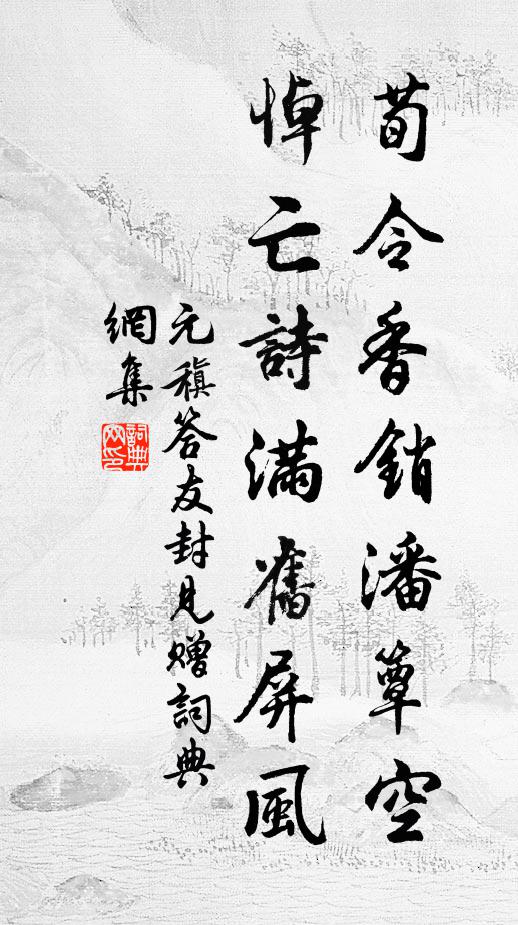 荀令香銷潘簟空
悼亡詩滿舊屏風
元稹答友封見贈詞典
網集
詞典網印